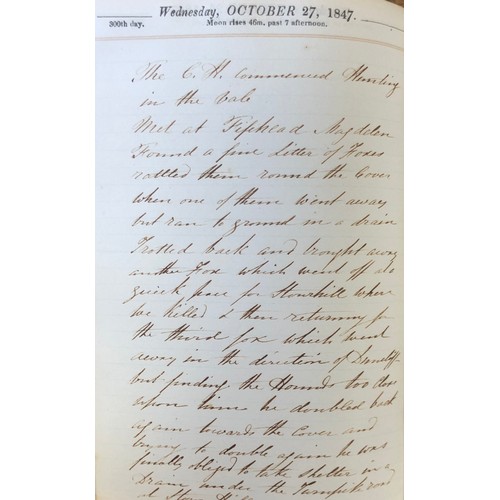 Wednesday, OCTOBER 27, 1847.
300th day. Moon rises 48m. past 7 afternoon.
The C. H. Commenced Hunting
in the Vale
Met at Fiphead Magdden
Found a fine Litter of Foxes
rattled them round the Cover
when one of them went away
but ran to ground in a drain
Trotted back and brought away
another Fox which went off at a
quick pace for Stowhill where
we killed & then returning for
the third fox which went
away in the direction of
but finding the Hounds too close
upon him he doubled back
again towards the Cover and
trying to double again he was
finally obliged to take shelter in a
Drain under the Turnpike road
at Stow Hill